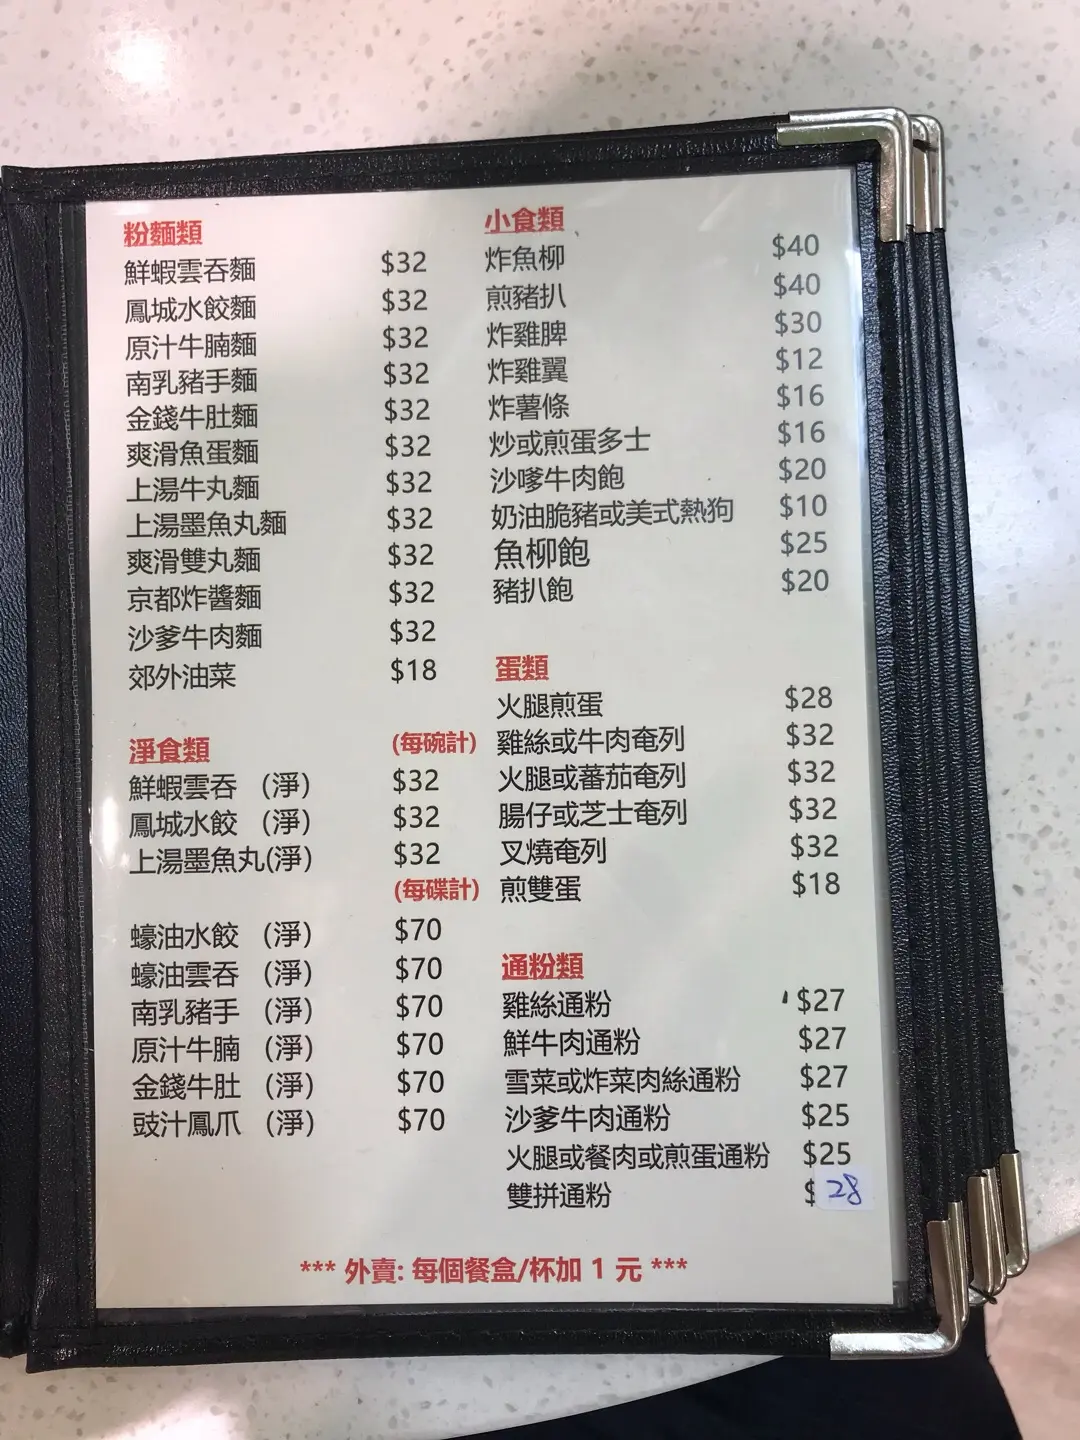 粉麵類
鮮蝦雲吞麵 $32
鳳城水餃麵 $32
原汁牛腩麵 $32
南乳豬手麵 $32
金錢牛肚麵 $32
爽滑魚蛋麵 $32
上湯牛丸麵 $32
上湯墨魚丸麵 $32
爽滑雙丸麵 $32
京都炸醬麵 $32
沙爹牛肉麵 $32
郊外油菜 $18
淨食類 (每碗計)
鮮蝦雲吞 (淨) $32
鳳城水餃 (淨) $32
上湯墨魚丸(淨) $32
(每碟計)
蠔油水餃 (淨) $70
蠔油雲吞 (淨) $70
南乳豬手 (淨) $70
原汁牛腩 (淨) $70
金錢牛肚 (淨) $70
豉汁鳳爪 (淨) $70
小食類
炸魚柳 $40
煎豬扒 $40
炸雞脾 $30
炸雞翼 $12
炸薯條 $16
炒或煎蛋多士 $16
沙嗲牛肉飽 $20
奶油脆豬或美式熱狗 $10
魚柳飽 $25
豬扒飽 $20
蛋類
火腿煎蛋 $28
雞絲或牛肉奄列 $32
火腿或蕃茄奄列 $32
腸仔或芝士奄列 $32
叉燒奄列 $32
煎雙蛋 $18
通粉類
雞絲通粉 $27
鮮牛肉通粉 $27
雪菜或炸菜肉絲通粉 $27
沙爹牛肉通粉 $25
火腿或餐肉或煎蛋通粉 $25
雙拼通粉 $28
*** 外賣: 每個餐盒/杯加 1 元 ***